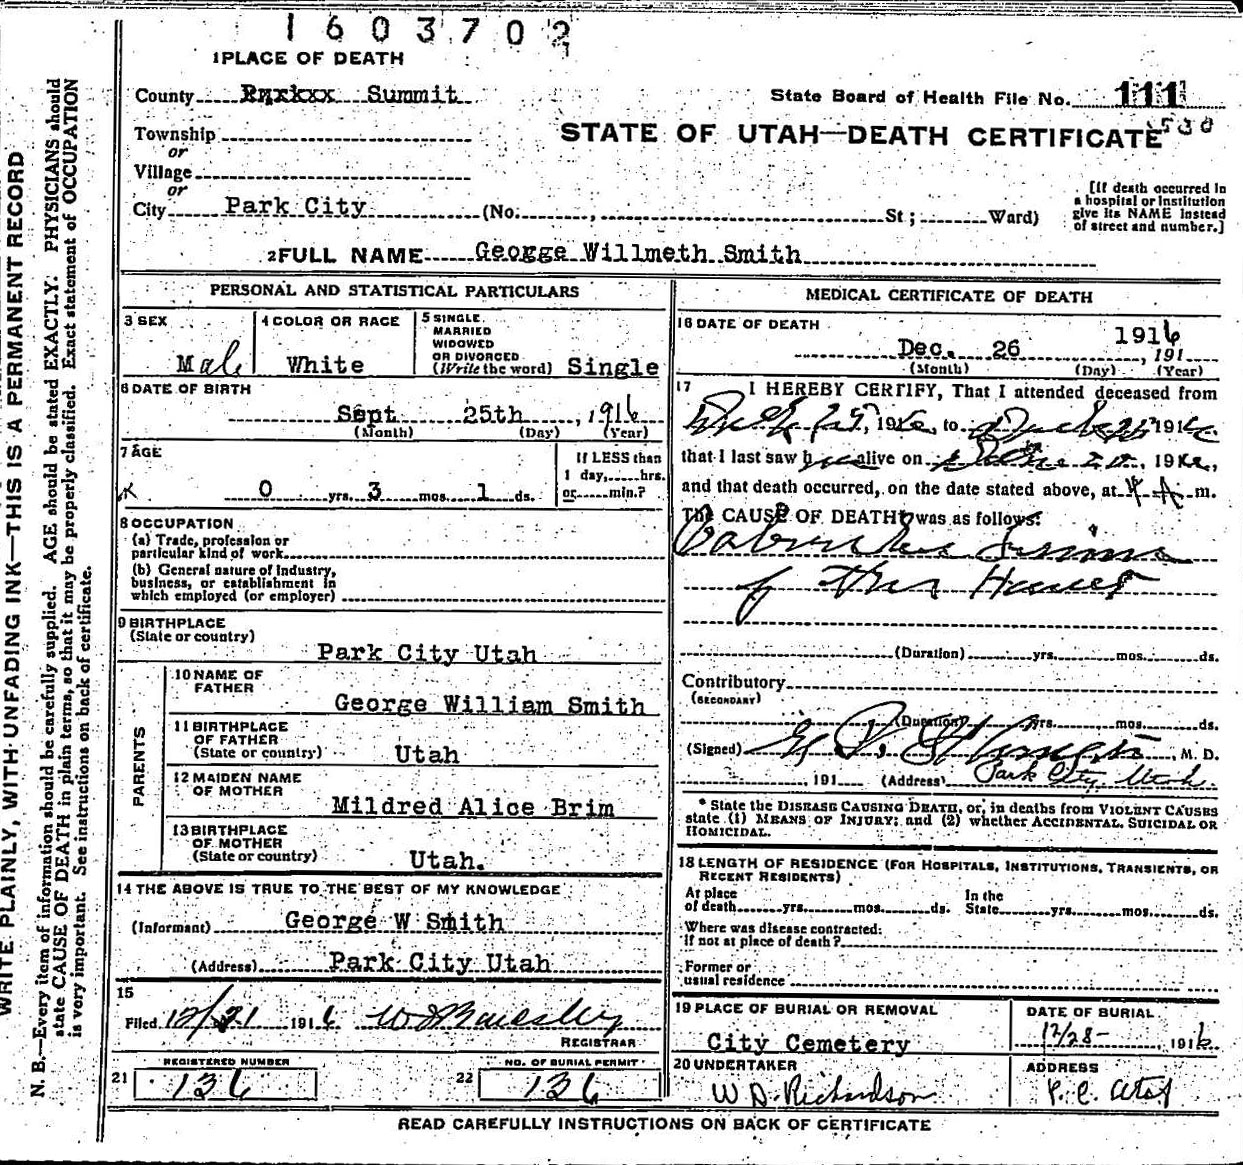 1603702
1 PLACE OF DEATH
County Pxxkxx Summit
State Board of Health File No. 111
Township
STATE OF UTAH—DEATH CERTIFICATE
or
Village
or
City Park City (No. , St ; Ward)
[If death occurred in
a hospital or institution
give its NAME instead
of street and number.]
2 FULL NAME Geogge Willmeth Smith
PERSONAL AND STATISTICAL PARTICULARS
3 SEX
Male
4 COLOR OR RACE
White
5 SINGLE
MARRIED
WIDOWED
OR DIVORCED
(Write the word) Single
6 DATE OF BIRTH
Sept 25th , 1916
(Month) (Day) (Year)
7 AGE
0 yrs. 3 mos. 1 ds.
If LESS than
1 day, hrs.
or min.?
8 OCCUPATION
(a) Trade, profession or
particular kind of work
(b) General nature of industry,
business, or establishment in
which employed (or employer)
9 BIRTHPLACE
(State or country)
Park City Utah
PARENTS
10 NAME OF
FATHER
George William Smith
11 BIRTHPLACE
OF FATHER
(State or country) Utah
12 MAIDEN NAME
OF MOTHER
Mildred Alice Brim
13 BIRTHPLACE
OF MOTHER
(State or country) Utah.
14 THE ABOVE IS TRUE TO THE BEST OF MY KNOWLEDGE
(Informant) George W Smith
(Address) Park City Utah
15
Filed 191
REGISTRAR
REGISTERED NUMBER
21 136
NO. OF BURIAL PERMIT
22 136
MEDICAL CERTIFICATE OF DEATH
16 DATE OF DEATH
1916
Dec. 26 , 191
(Month) (Day) (Year)
17 I HEREBY CERTIFY, That I attended deceased from
191 to 191
that I last saw h alive on , 191 ,
and that death occurred, on the date stated above, at m.
The CAUSE OF DEATH* was as follows:
of the Heart
(Duration) yrs. mos. ds.
Contributory
(SECONDARY)
(Duration) yrs. mos. ds.
(Signed) , M. D.
, 191 (Address) Park City, Utah.
* State the DISEASE CAUSING DEATH, or, in deaths from VIOLENT CAUSES
state (1) MEANS OF INJURY; and (2) whether ACCIDENTAL, SUICIDAL OR
HOMICIDAL.
18 LENGTH OF RESIDENCE (FOR HOSPITALS, INSTITUTIONS, TRANSIENTS, OR
RECENT RESIDENTS)
At place
of death yrs. mos. ds.
In the
State yrs. mos. ds.
Where was disease contracted:
If not at place of death?
Former or
usual residence
19 PLACE OF BURIAL OR REMOVAL
City Cemetery
DATE OF BURIAL
12/28- , 1916
20 UNDERTAKER
W D. Richardson
ADDRESS
P. C. Utah
READ CAREFULLY INSTRUCTIONS ON BACK OF CERTIFICATE
WRITE PLAINLY, WITH UNFADING INK—THIS IS A PERMANENT RECORD
N. B.—Every item of information should be carefully supplied. AGE should be stated EXACTLY. PHYSICIANS should
state CAUSE OF DEATH in plain terms, so that it may be properly classified. Exact statement of OCCUPATION
is very important. See instructions on back of certificate.